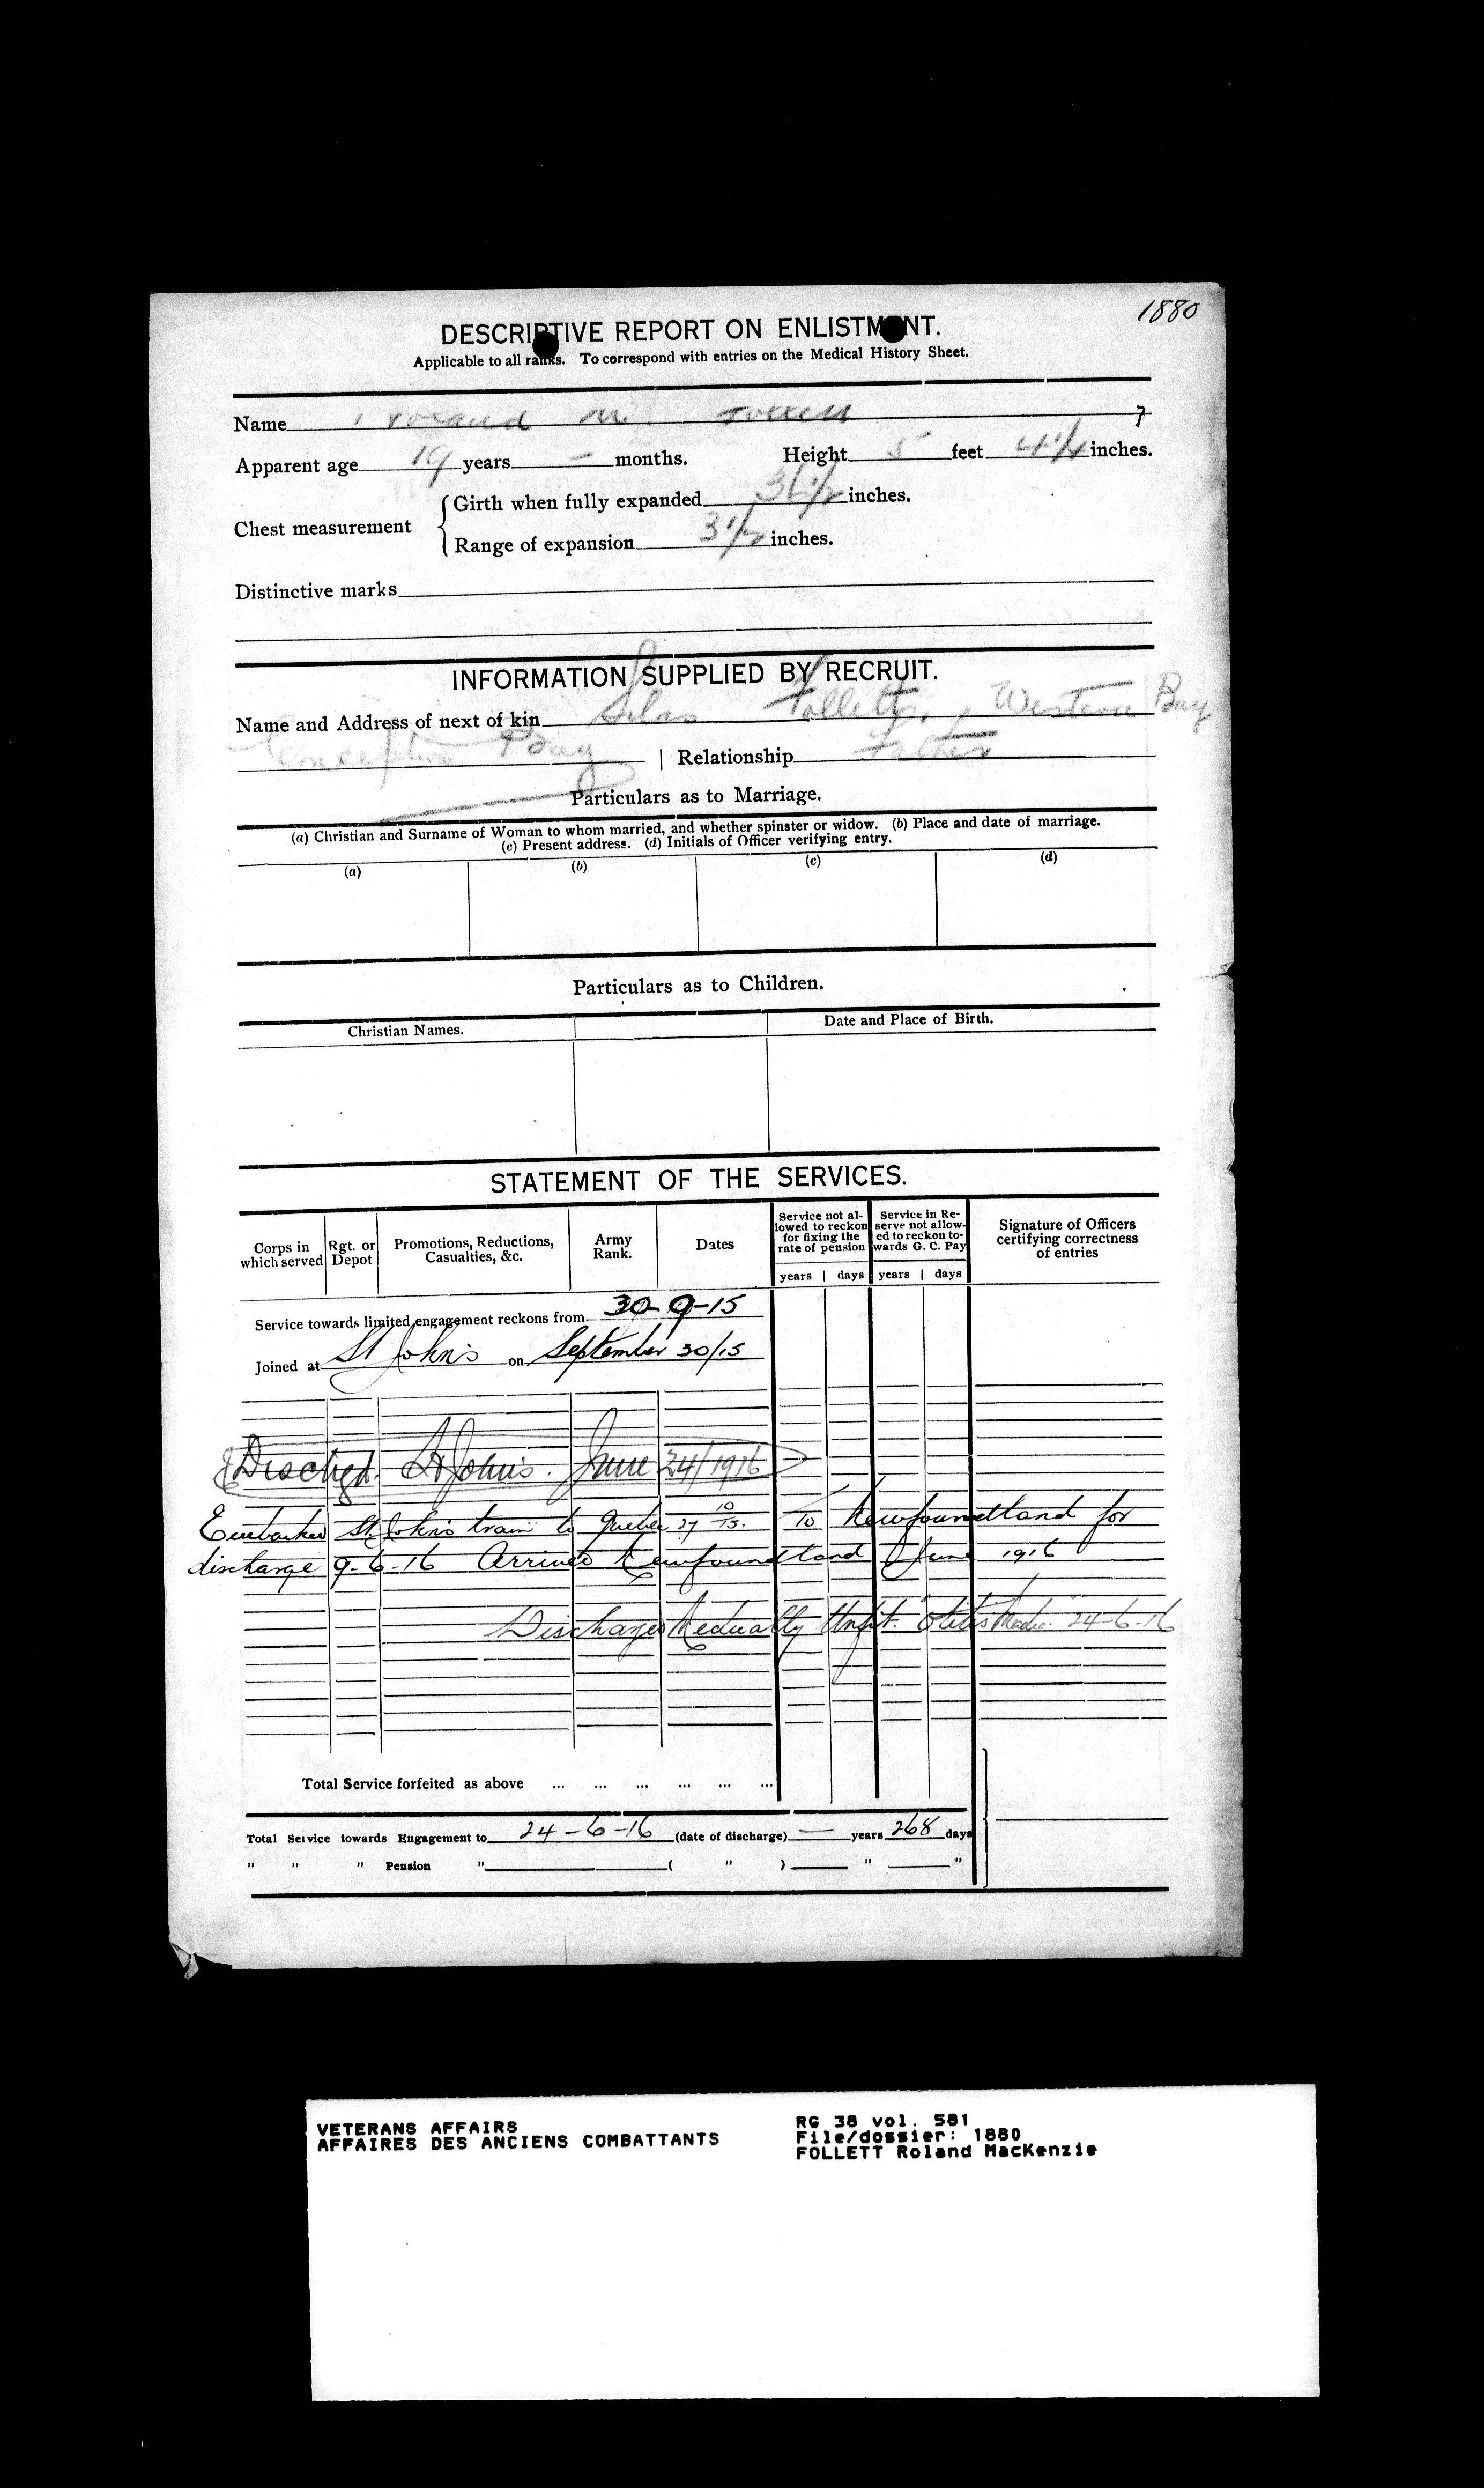 1880
DESCRIPTIVE REPORT ON ENLISTMENT.
Applicable to all ranks. To correspond with entries on the Medical History Sheet.
Name Roland M. Follett
Apparent age 19 years - months. Height 5 feet 4 1/4 inches.
Chest measurement
Girth when fully expanded 36 1/2 inches.
Range of expansion 3 1/2 inches.
Distinctive marks
INFORMATION SUPPLIED BY RECRUIT.
Name and Address of next of kin Silas Follett, Western Bay
Conception Bay | Relationship Father
Particulars as to Marriage.
(a) Christian and Surname of Woman to whom married, and whether spinster or widow. (b) Place and date of marriage.
(c) Present address. (d) Initials of Officer verifying entry.
(a) (b) (c) (d)
Particulars as to Children.
Christian Names. Date and Place of Birth.
STATEMENT OF THE SERVICES.
Corps in which served
Rgt. or Depot
Promotions, Reductions, Casualties, &c.
Army Rank.
Dates
Service not allowed to reckon for fixing the rate of pension
Service in Reserve not allowed to reckon towards G. C. Pay
Signature of Officers certifying correctness of entries
years | days years | days
Service towards limited engagement reckons from 30-9-15
Joined at St John's on September 30/15
Dischgd. St John's. June 24/1916
Embarked St John's train to Quebec 27 10/15. To Newfoundland for
discharge 9-6-16 Arrived Newfoundland June 1916
Discharged Medically Unfit. Otitis Media 24-6-16
Total Service forfeited as above ... ... ... ... ... ...
Total Service towards Engagement to 24-6-16 (date of discharge) — years 268 days
" " " Pension " ( " ) " "
VETERANS AFFAIRS
AFFAIRES DES ANCIENS COMBATTANTS
RG 38 vol. 581
File/dossier: 1880
FOLLETT Roland MacKenzie